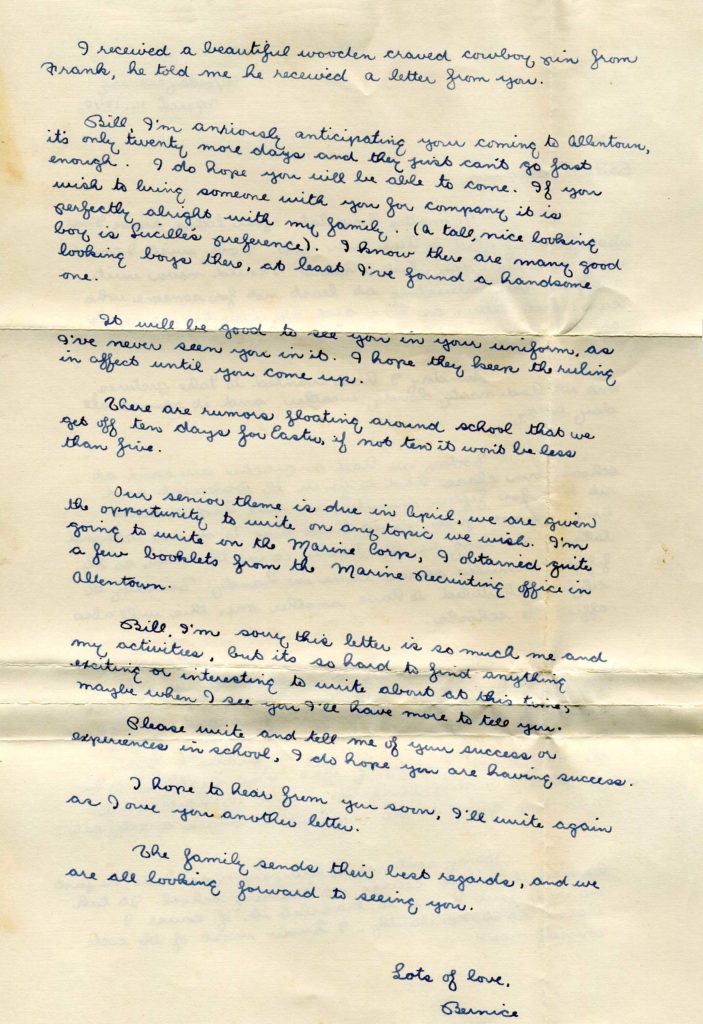 I received a beautiful wooden craved cowboy pin from
Frank, he told me he received a letter from you.
Bill, I'm anxiously anticipating your coming to Allentown,
it's only twenty more days and they just can't go fast
enough. I do hope you will be able to come. If you
wish to bring someone with you for company it is
perfectly alright with my family. (A tall, nice looking
boy is Lucille's preference). I know there are many good
looking boys there, at least I've found a handsome
one.
It will be good to see you in your uniform, as
I've never seen you in it. I hope they keep the ruling
in affect until you come up.
There are rumors floating around school that we
get off ten days for Easter, if not ten it won't be less
than five.
Our senior theme is due in April, we are given
the opportunity to write on any topic we wish. I'm
going to write on the Marine Corp, I obtained quite
a few booklets from the Marine Recruiting office in
Allentown.
Bill, I'm sorry this letter is so much me and
my activities, but its so hard to find anything
exciting or interesting to write about at this time,
maybe when I see you I'll have more to tell you.
Please write and tell me of your success or
experiences in school, I do hope you are having success.
I hope to hear from you soon, I'll write again
as I owe you another letter.
The family sends their best regards, and we
are all looking forward to seeing you.
Lots of love,
Bernice